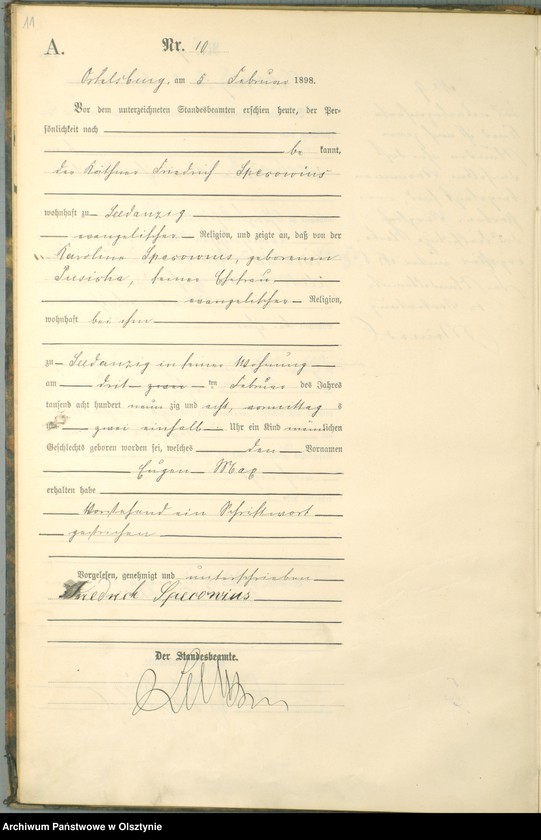 11
A.
Nr. 10
Ortelsburg, am 5 Februar 1898.
Vor dem unterzeichneten Standesbeamten erschien heute, der Per-
sönlichkeit nach
be kannt,
der Käthner Friedrich Sperowius
wohnhaft zu Seedanzig
evangelischer Religion, und zeigte an, daß von der
Karoline Sperowius, geborenen
seiner Ehefrau
evangelischer Religion,
wohnhaft bei ihm
zu Seedanzig in seiner Wohnung
am drei zwei ten Februar des Jahres
tausend acht hundert neun zig und acht, vormittag s
um zwei einhalb Uhr ein Kind männlichen
Geschlechts geboren worden sei, welches den Vornamen
Eugen Max
erhalten habe
Vorstehend ein Schriftwort
gestrichen
Vorgelesen, genehmigt und unterschrieben
Friedrich Sperowius
Der Standesbeamte.
Archiwum Państwowe w Olsztynie